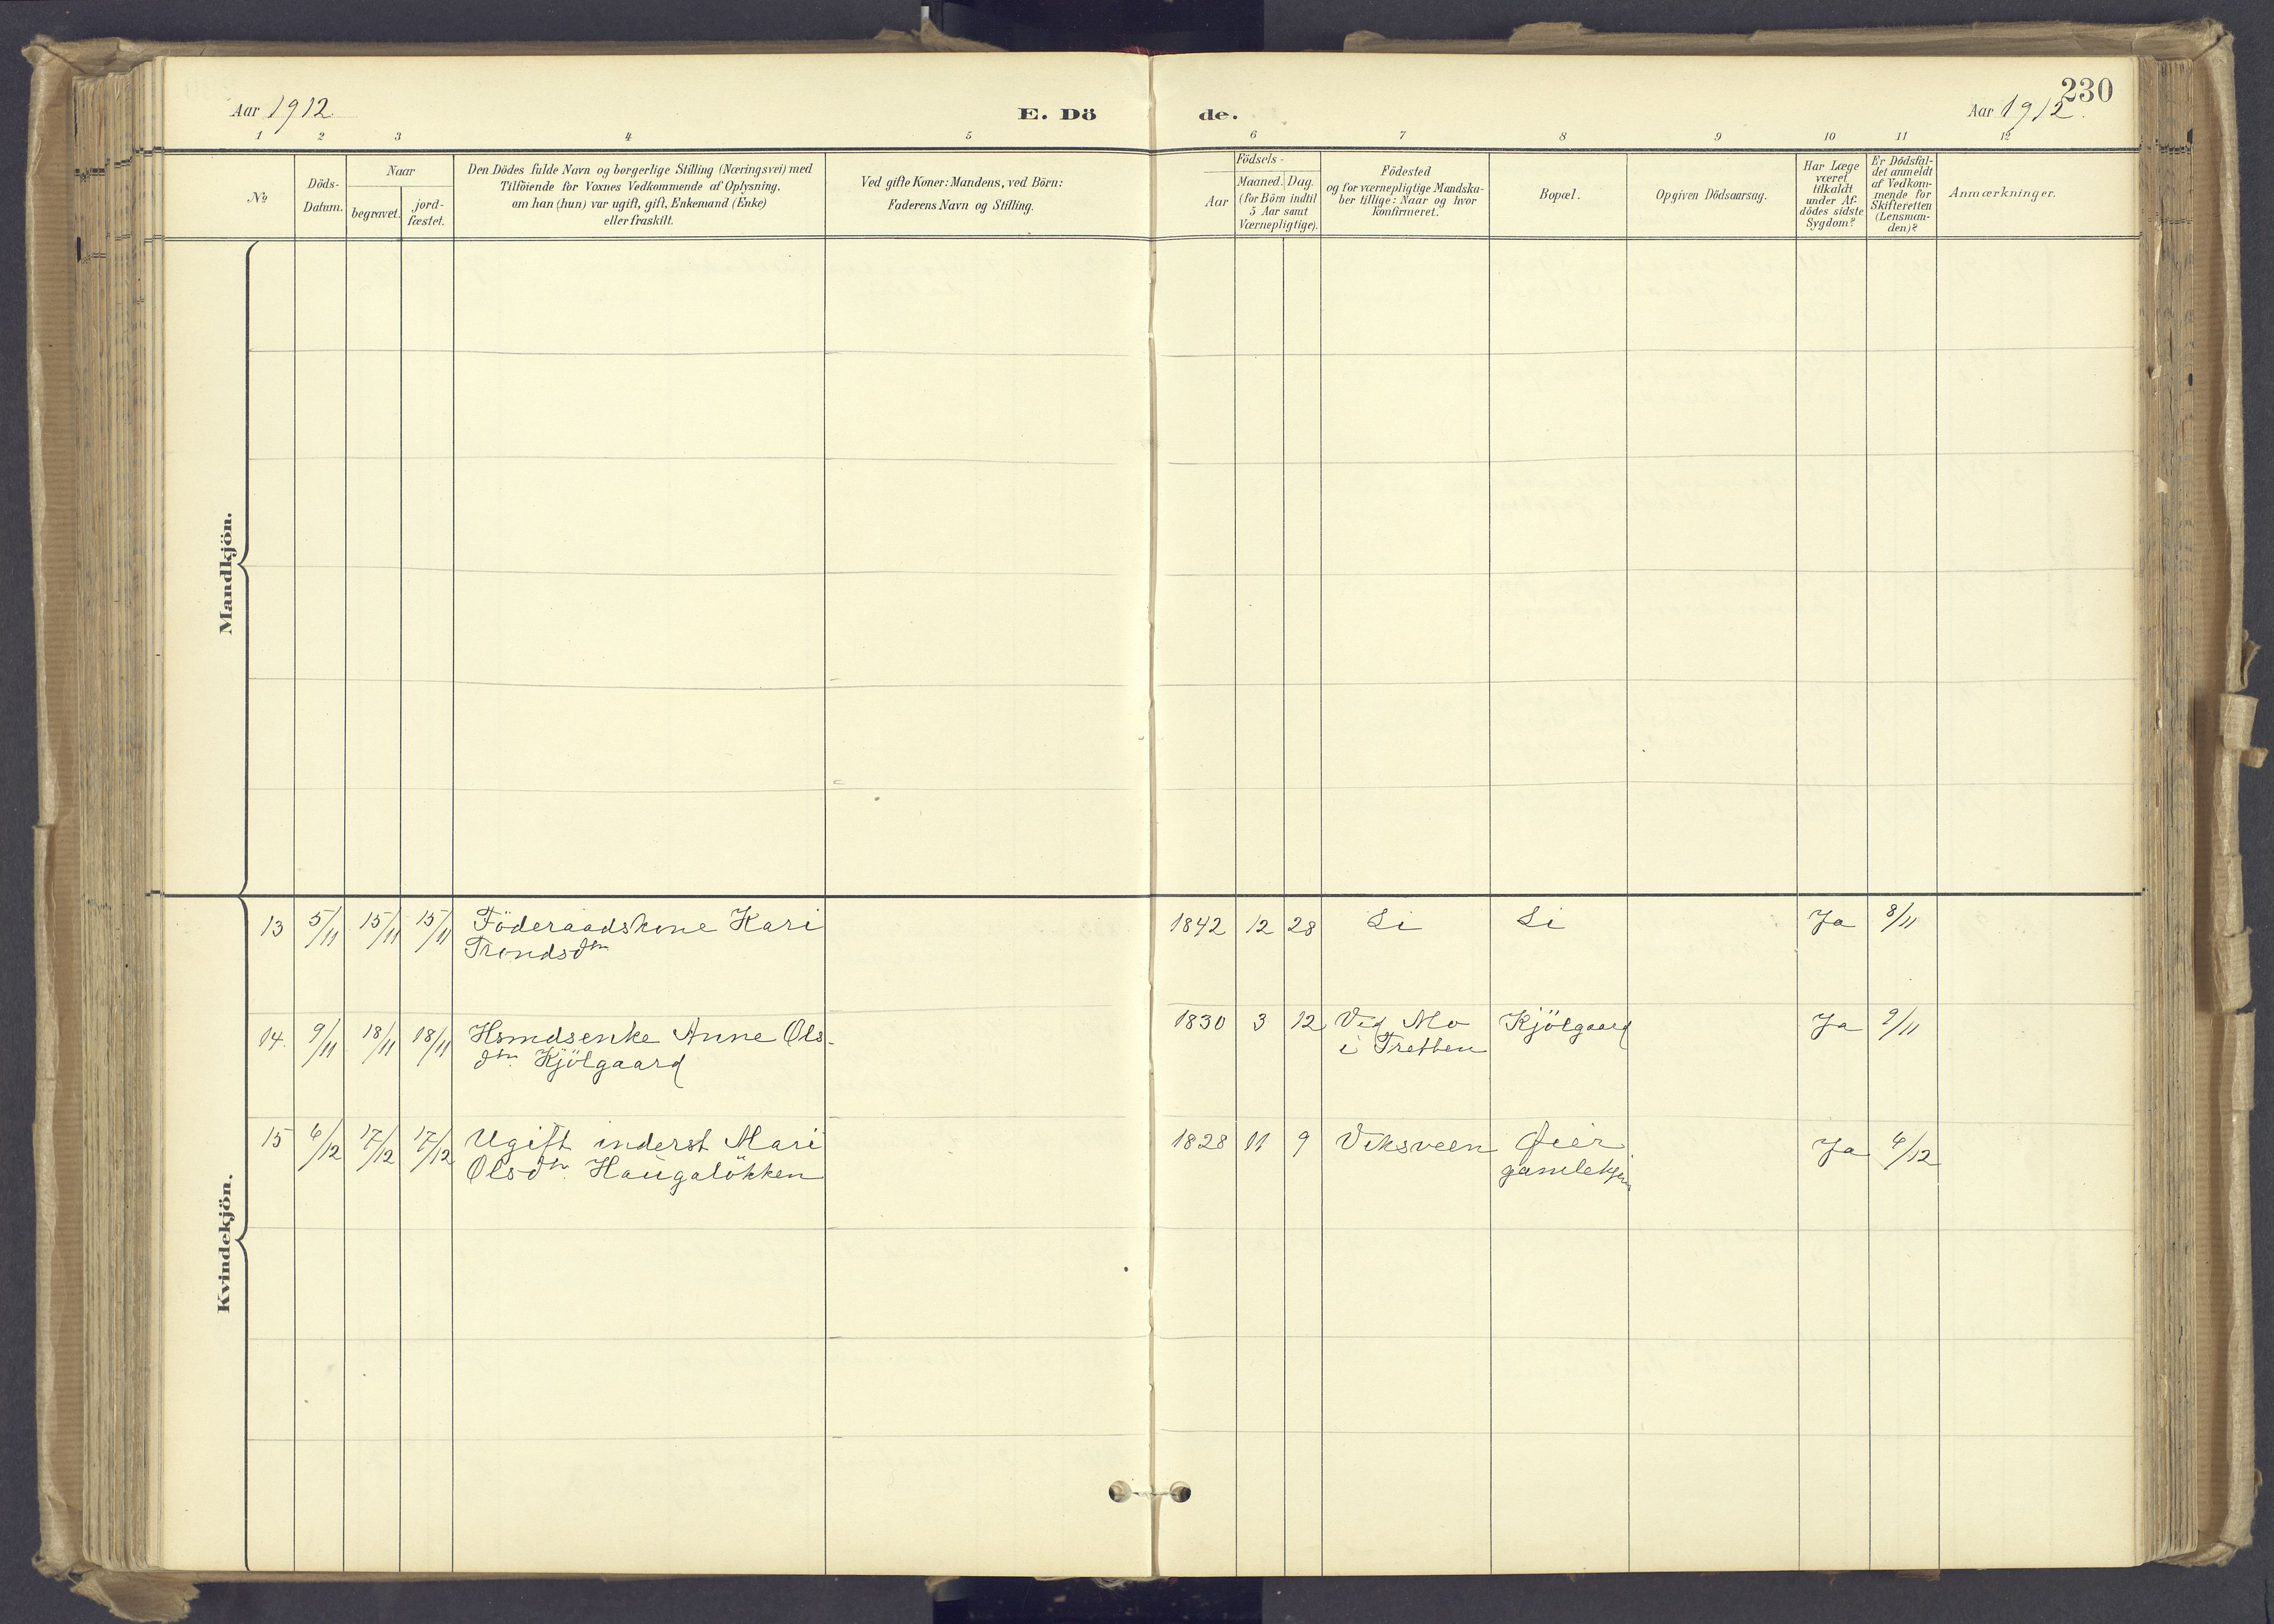 230
Aar 1912.
E. Dö
de.
Aar 1912.
1 2 3 4 5 6 7 8 9 10 11 12
No
Döds-
Datum.
Naar
begravet.
jord-
fæstet.
Den Dödes fulde Navn og borgerlige Stilling (Næringsvei) med
Tilföiende for Voxnes Vedkommende af Oplysning,
om han (hun) var ugift, gift, Enkemand (Enke)
eller fraskilt.
Ved gifte Koner: Mandens, ved Börn:
Faderens Navn og Stilling.
Födsels-
Aar
Maaned. Dag.
(for Börn indtil
5 Aar samt
Værnepligtige).
Födested
og for værnepligtige Mandska-
ber tillige: Naar og hvor
konfirmeret.
Bopæl.
Opgiven Dödsaarsag.
Har Læge
været
tilkaldt
under Af-
dödes sidste
Sygdom?
Er Dödsfal-
det anmeldt
af Vedkom-
mende for
Skifteretten
(Lensman-
den)?
Anmærkninger.
Mandkjön.
Kvindekjön.
13 5/11 15/11 15/11 Föderaadskone Kari 1842 12 28 Li Li Ja 8/11
Trondsdtr
14. 9/11 18/11 18/11 Hsmdsenke Anne Ols- 1830 3 12 Ved Mo Kjölgaard Ja 9/11
dtr. Kjölgaard i Tretten
15 6/12 17/12 17/12 Ugift inderst Mari 1828 11 9 Viksveen Øier Ja 6/12
Olsdtr. Haugalökken gamlehjem